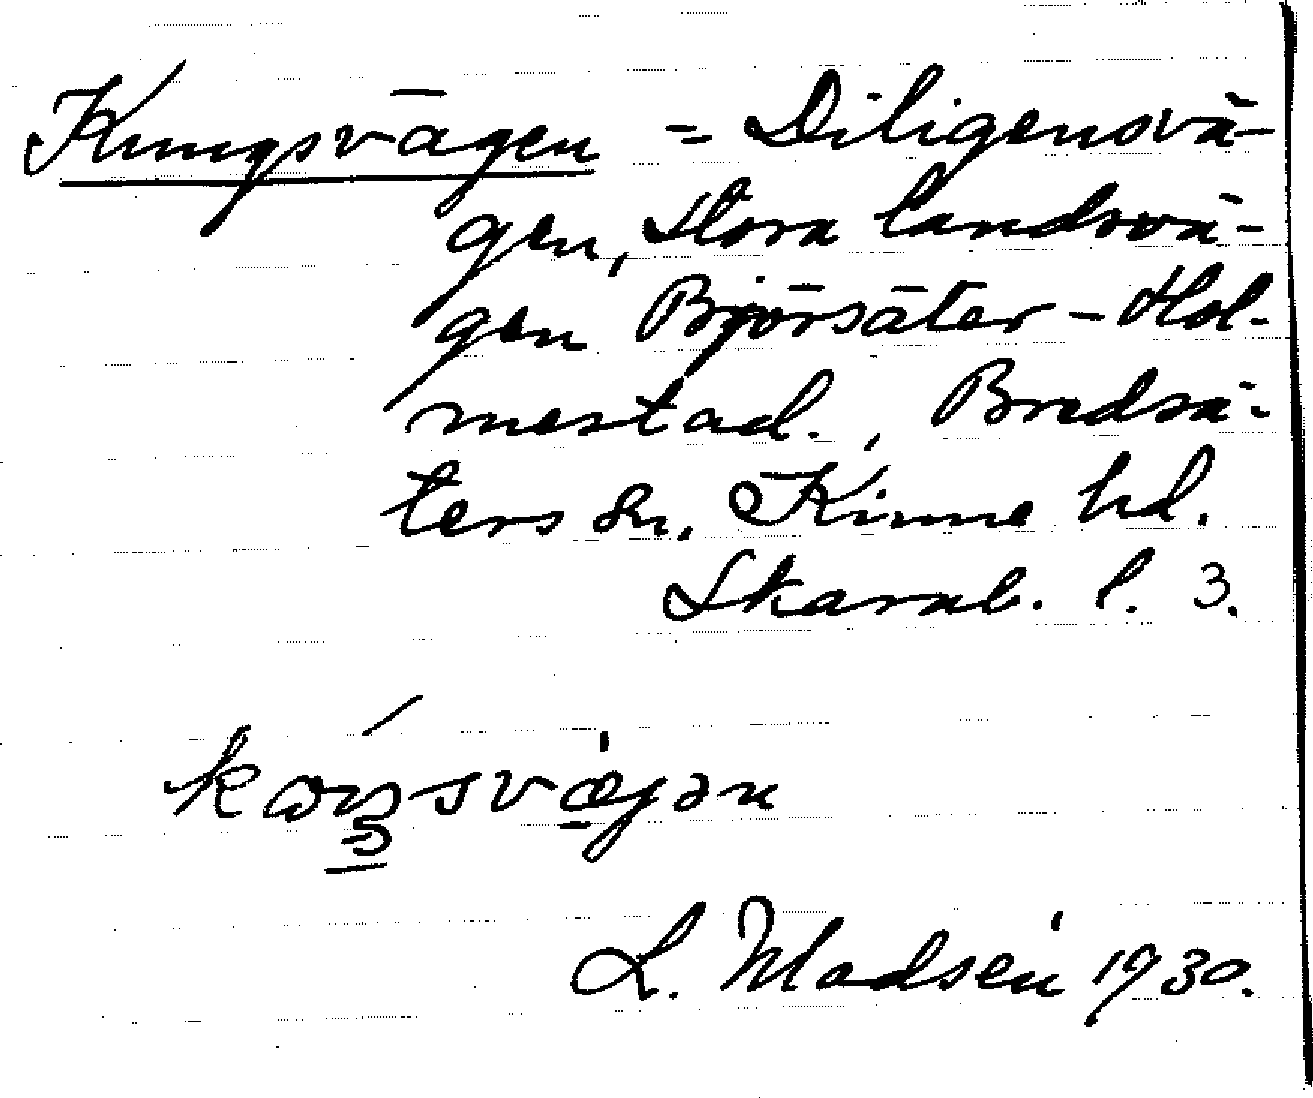 Kungsvägen = Diligensvä-
gen, Stora landsvä-
gen Björsäter - Hol-
mestad., Bredsä-
ters sn. Kinne hd.
Skarab. l. 3.
L. Modsén 1930.